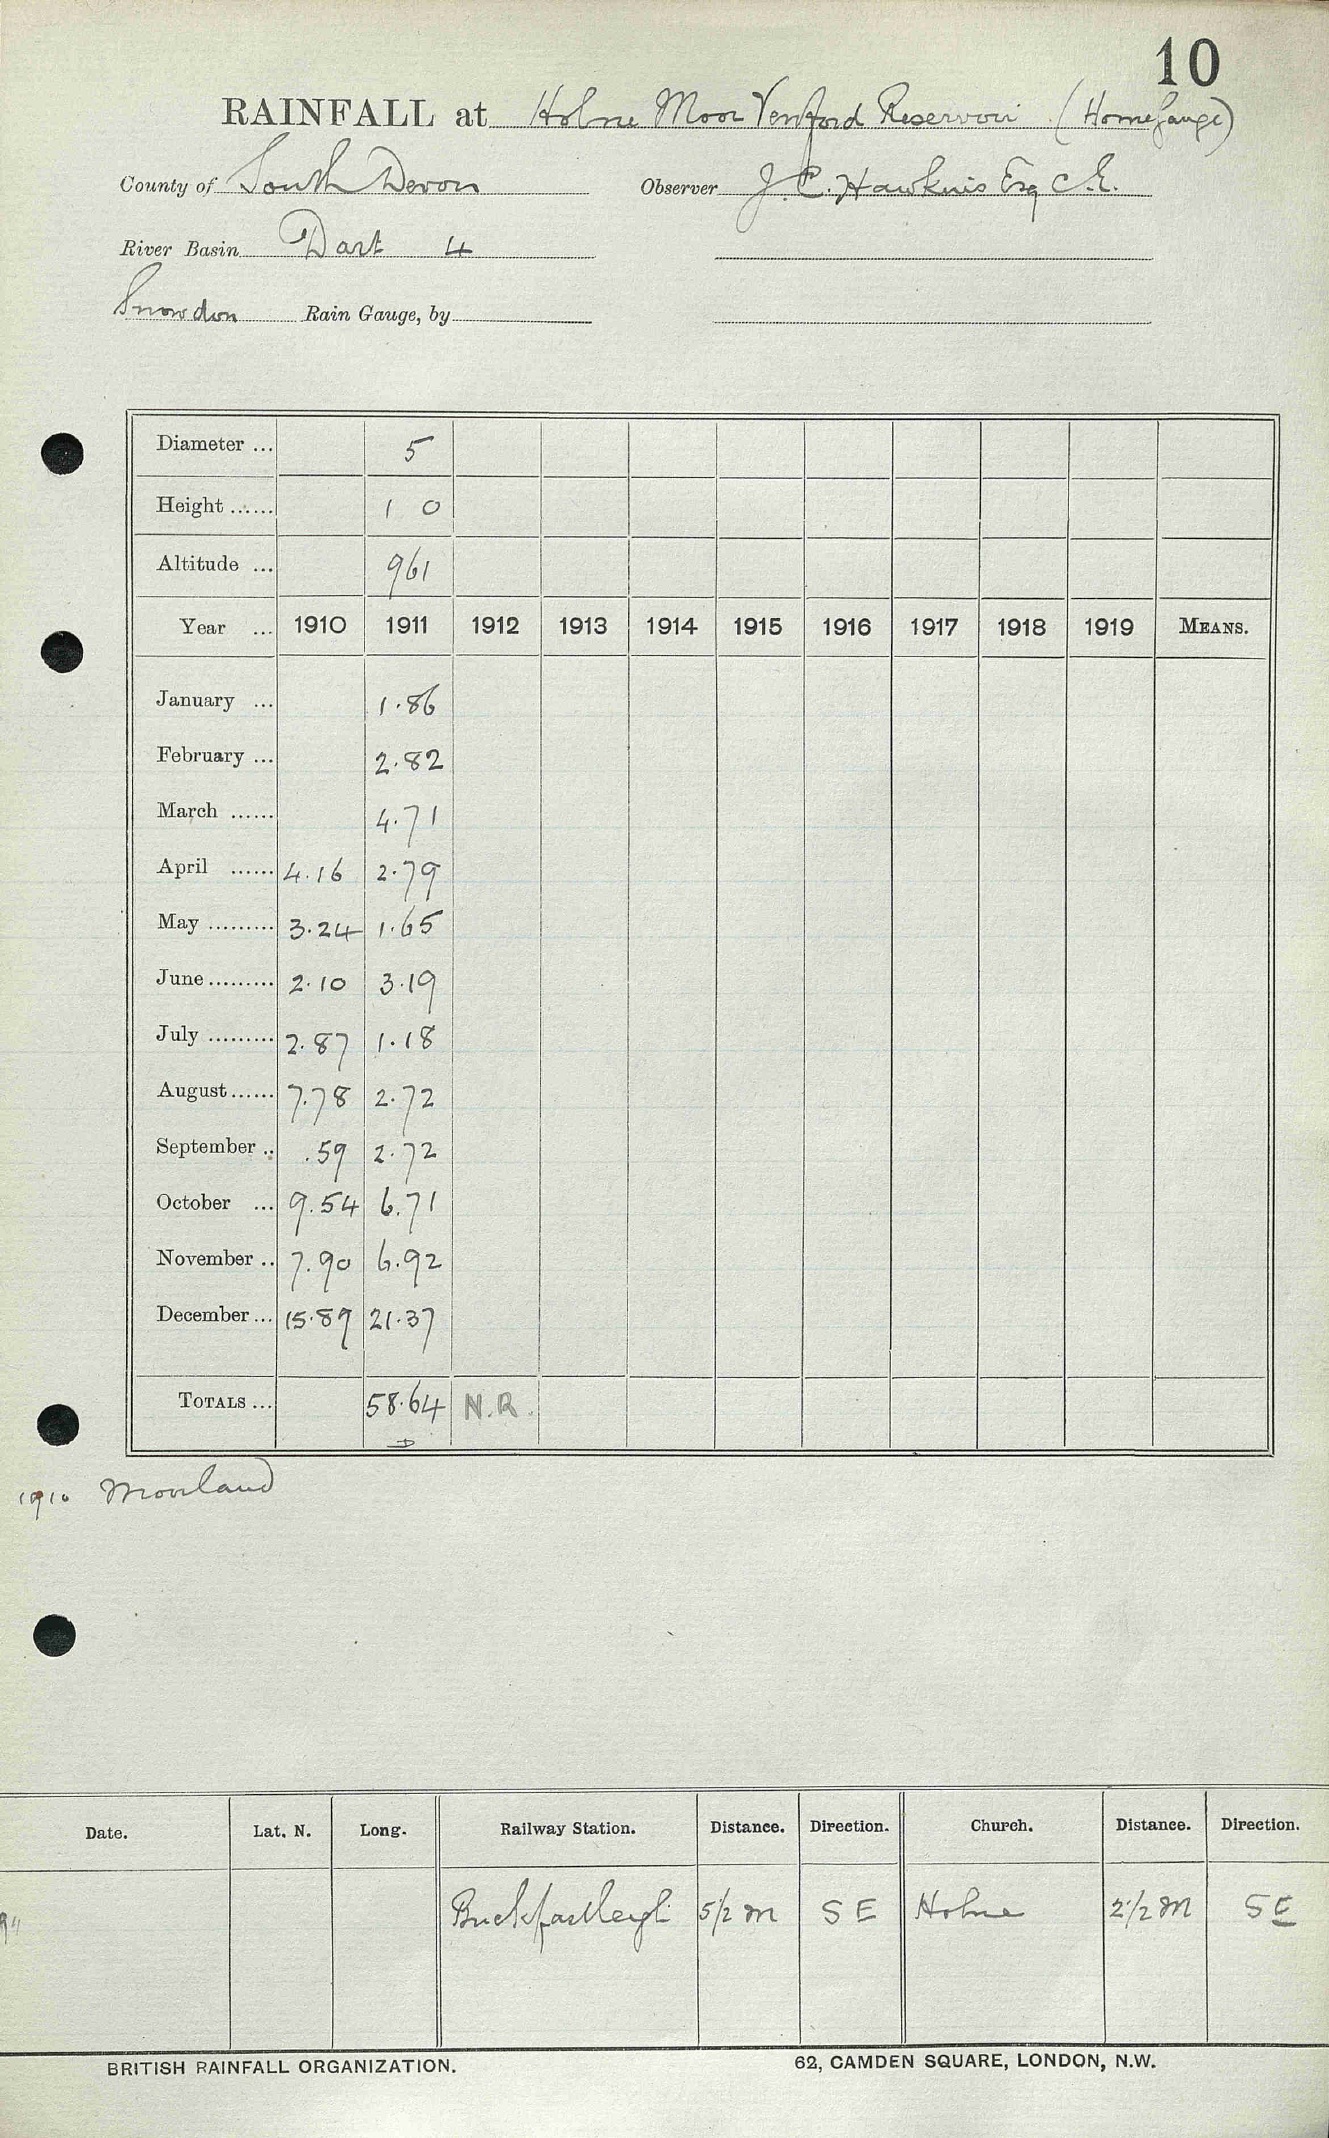 10
RAINFALL at Holne Moor Venford Reservoir (Home Gauge)
County of South Devon Observer J. C. Hawkins Esq C.E.
River Basin Dart 4
Snowdon Rain Gauge, by
Diameter ... 5
Height ...... 1 0
Altitude ... 961
Year ... 1910 1911 1912 1913 1914 1915 1916 1917 1918 1919 MEANS.
January ... 1.86
February ... 2.82
March ...... 4.71
April ...... 4.16 2.79
May ......... 3.24 1.65
June ......... 2.10 3.19
July ......... 2.87 1.18
August ...... 7.78 2.72
September .. .59 2.72
October ... 9.54 6.71
November .. 7.90 6.92
December ... 15.89 21.37
TOTALS ... 58.64 N.R.
1910 Moorland
Date. Lat. N. Long. Railway Station. Distance. Direction. Church. Distance. Direction.
Buckfastleigh 5½ m S E Holne 2½ m S E
BRITISH RAINFALL ORGANIZATION. 62, CAMDEN SQUARE, LONDON, N.W.